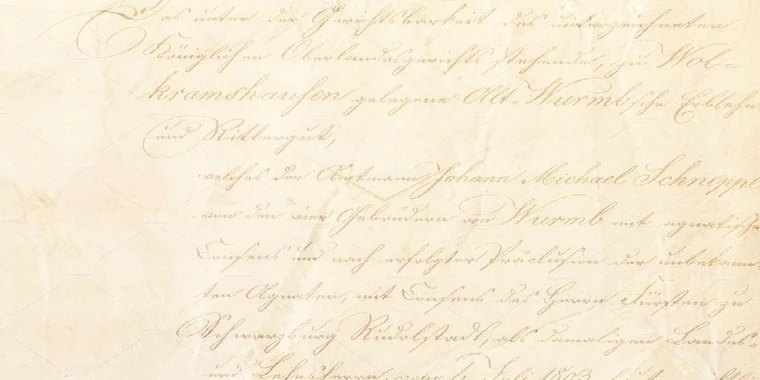 Das unter der Gerichtsbarkeit des unterzeichneten
Königlichen Oberlandesgerichts stehende, zu Wol-
kramshausen gelegene Alt-Wurmb'sche Erblehn
und Rittergut,
welches der Amtmann Johann Michael Schneppe
von den vier Gebrüdern von Wurmb mit agnatische
Consens und nach erfolgter Präclusion der unbekann-
ten Agnaten, mit Consens des Herrn Fürsten zu
Schwarzburg Rudolstadt, als damaligen Landes-
und Lehnsherrn, vom Juli 1803